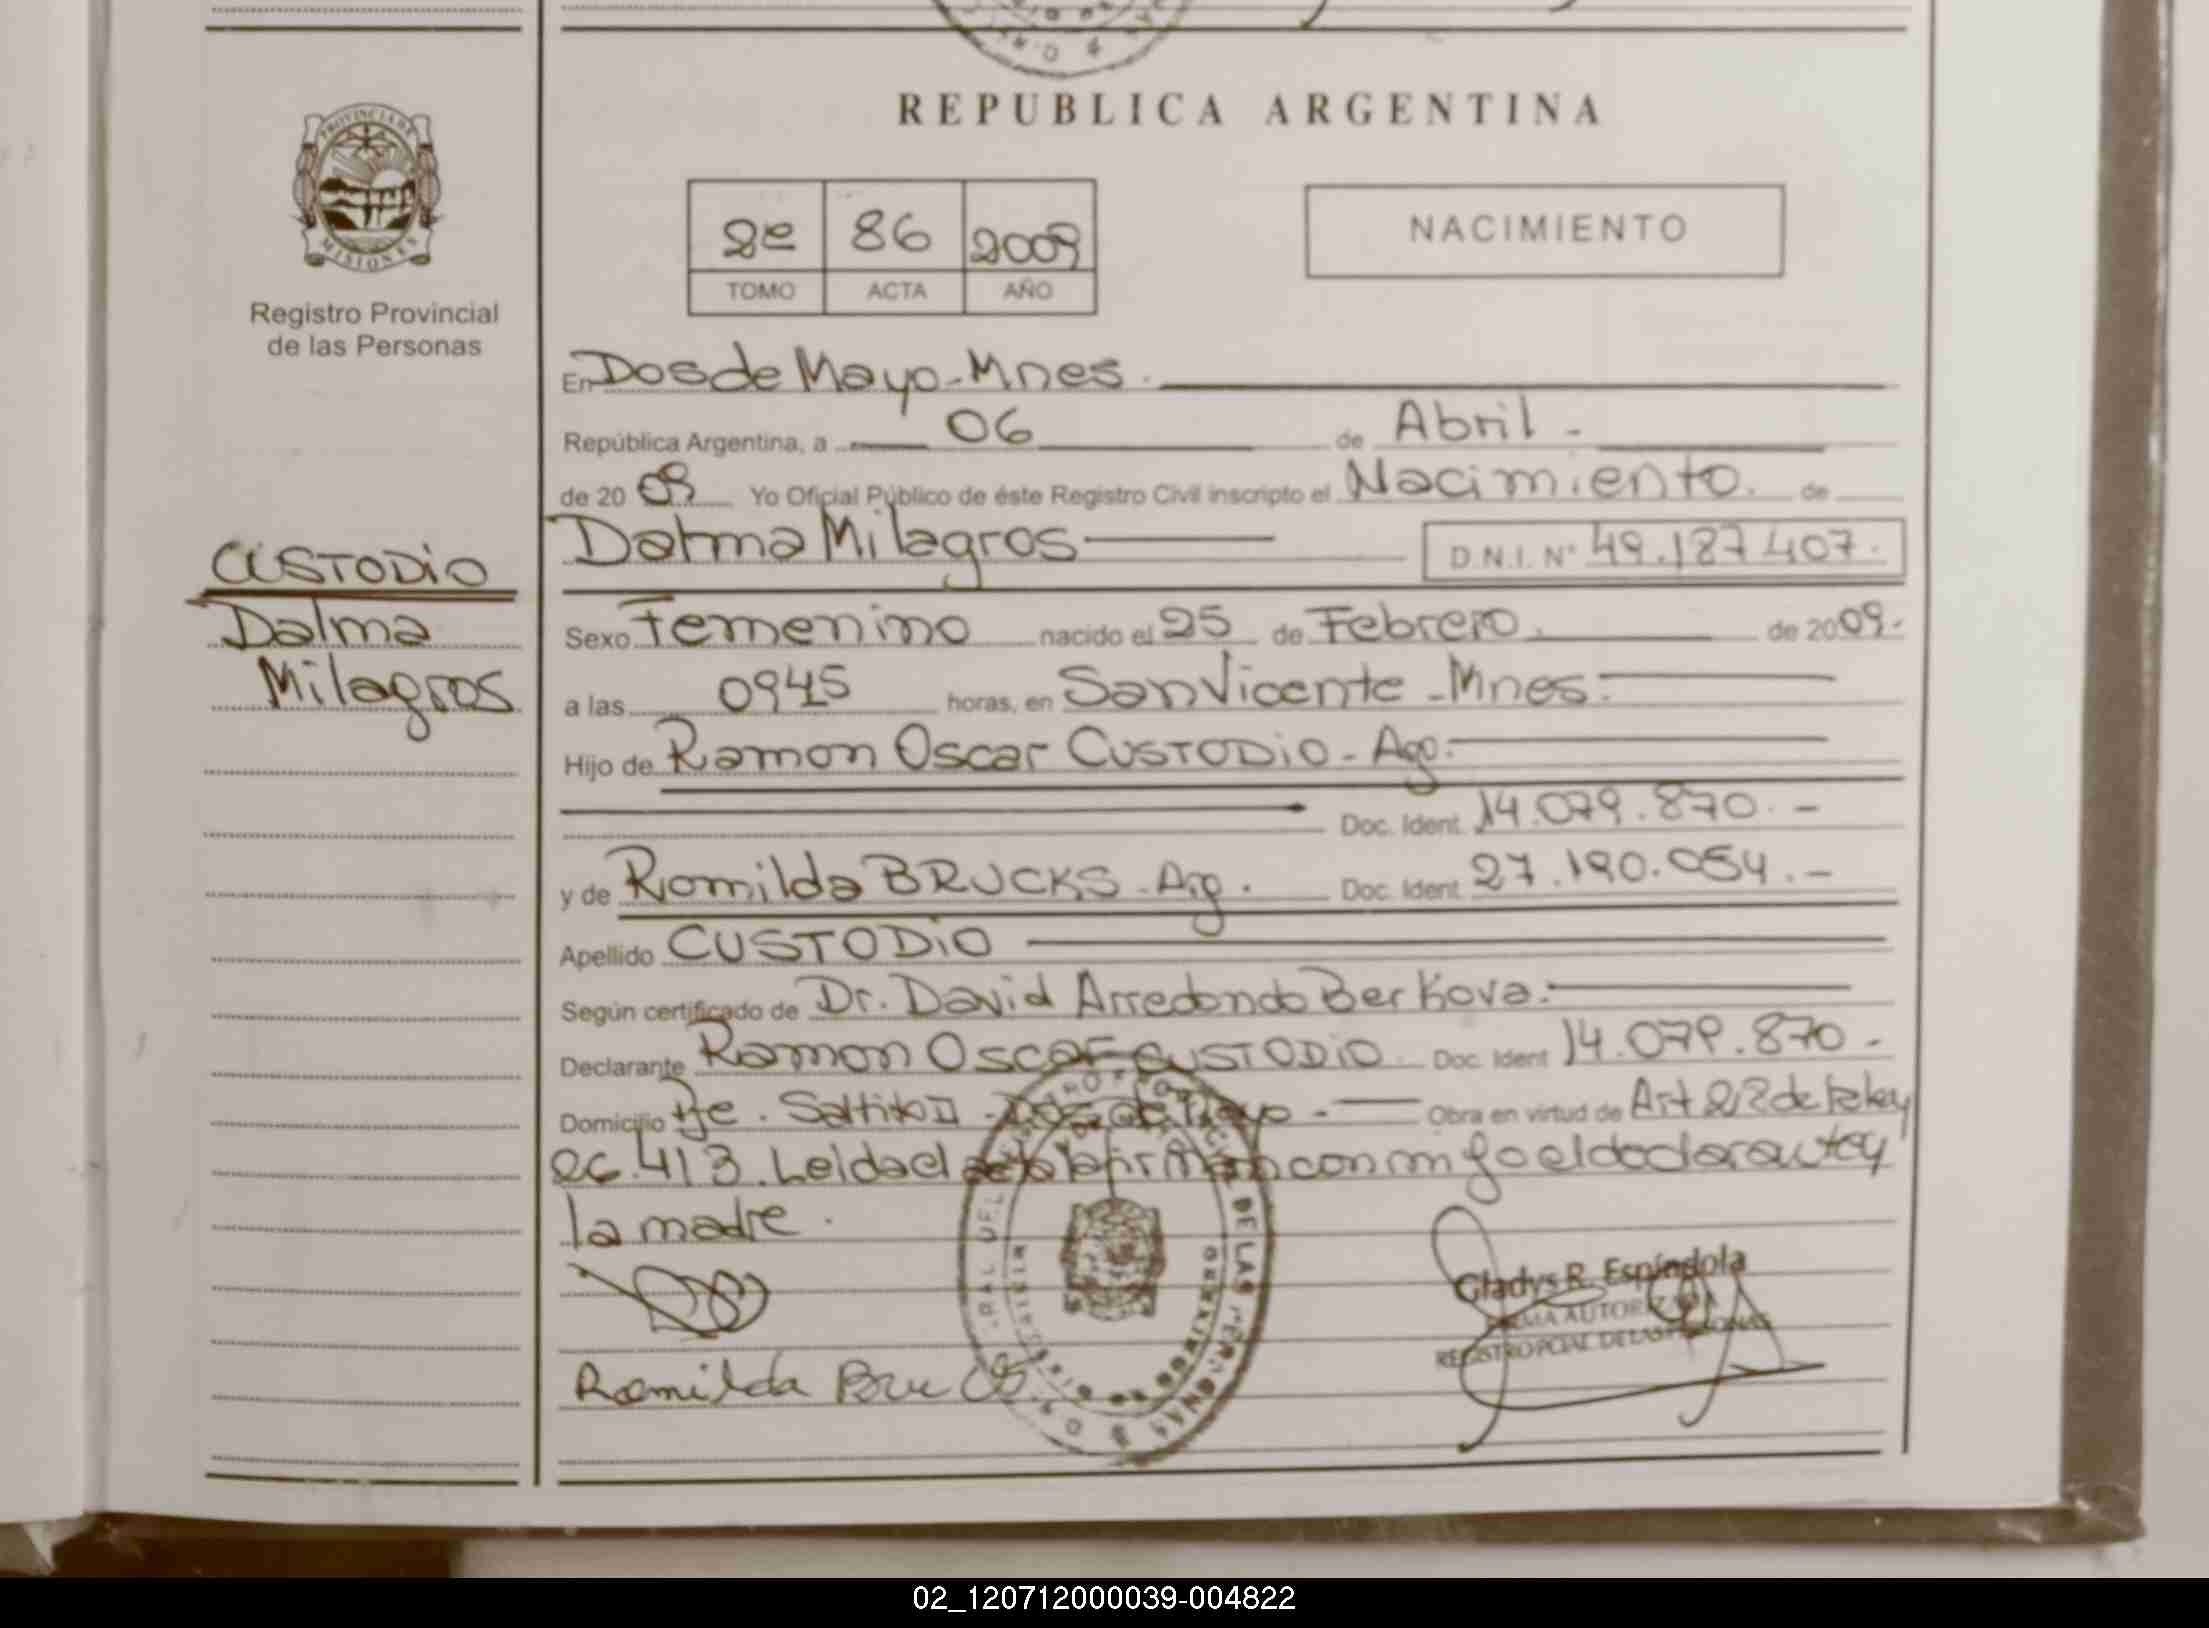 REPUBLICA ARGENTINA
PROVINCIA DE
MISIONES
Registro Provincial
de las Personas
2º 86 2009
TOMO ACTA AÑO
NACIMIENTO
En Dos de Mayo - Mnes.
República Argentina, a 06 de Abril -
de 20 09 Yo Oficial Público de éste Registro Civil inscripto el Nacimiento. de
CUSTODIO
Dalma
Milagros
Dalma Milagros D.N.I. N° 49.187.407.
Sexo Femenino nacido el 25 de Febrero. de 2009.
a las 0945 horas, en San Vicente - Mnes.
Hijo de Ramon Oscar CUSTODIO - Arg.
Doc. Ident. 14.079.870. -
y de Romilda BRUCKS - Arg. Doc. Ident. 27.190.054. -
Apellido CUSTODIO
Según certificado de Dr. David Arredondo Berkova.
Declarante Ramon Oscar CUSTODIO. Doc. Ident 14.079.870 -
Domicilio Pje. Saltito II - Dos de Mayo - Obra en virtud de Art 2/2 de la ley
26.413. Leida el acta la firman conmigo el declarante y
la madre.
Gladys R. Espíndola
FIRMA AUTORIZADA
REGISTRO PCIAL DE LAS PERSONAS
Romilda Brucks
02_120712000039-004822